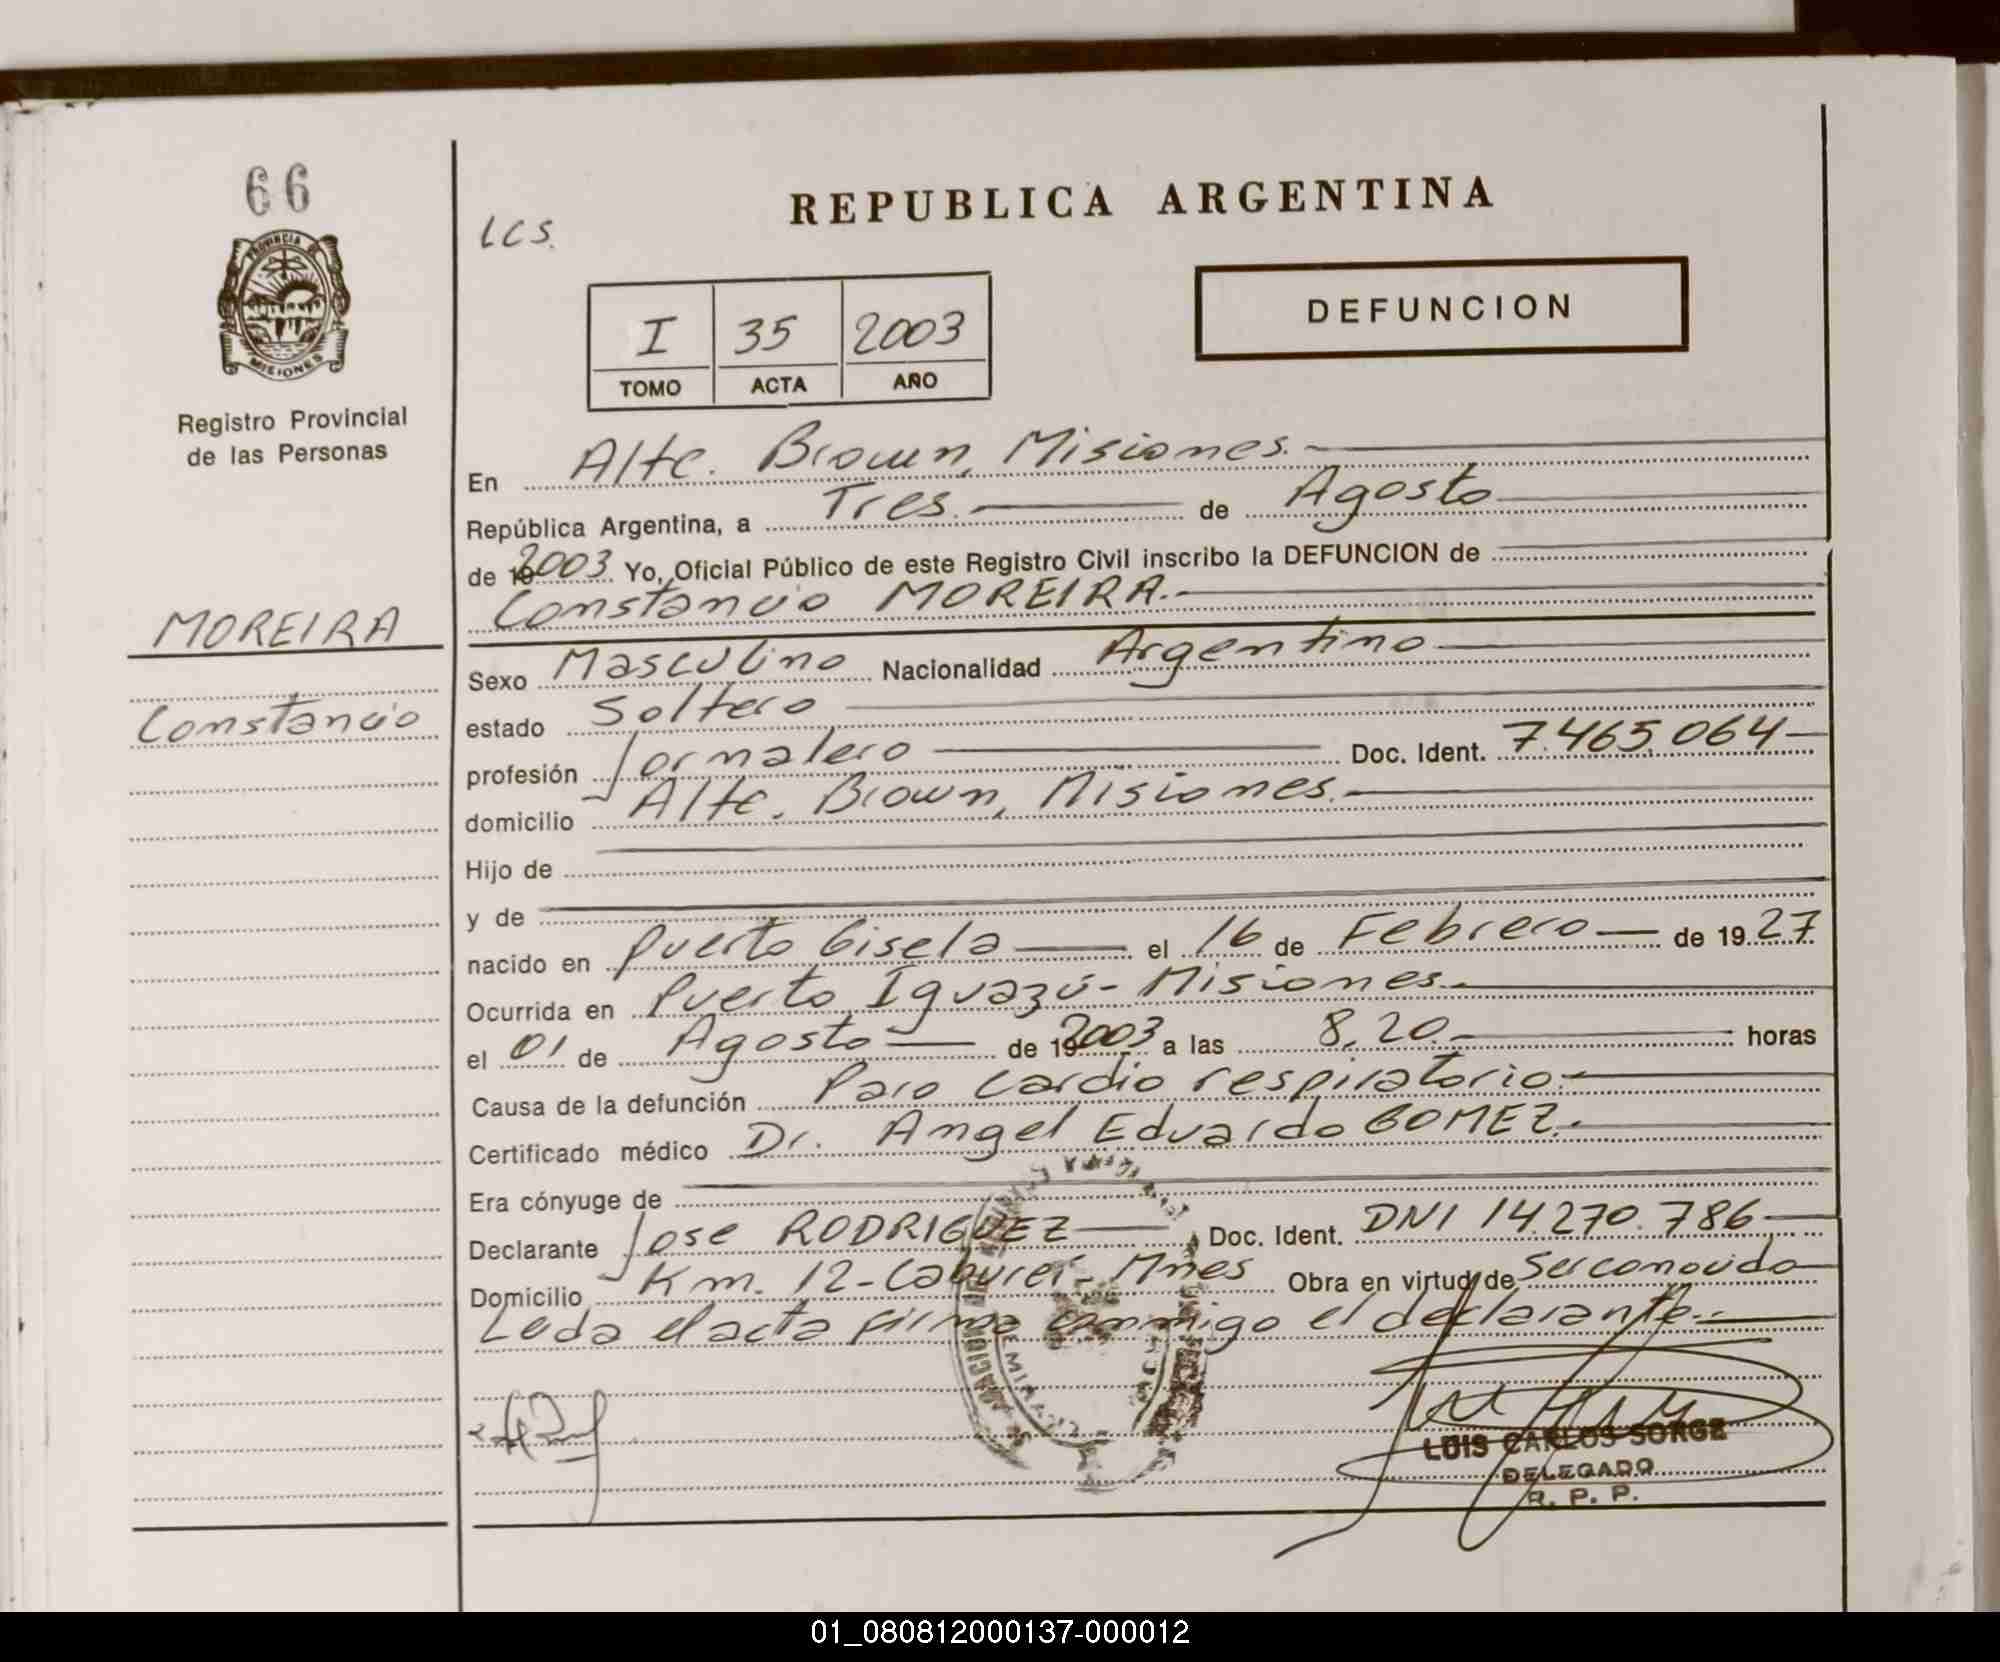 66
PROVINCIA DE
MISIONES
Registro Provincial
de las Personas
MOREIRA
Constancio
LCS.
REPUBLICA ARGENTINA
I 35 2003
TOMO ACTA AÑO
DEFUNCION
En Alte. Brown, Misiones.
República Argentina, a Tres. de Agosto
de 2003 Yo, Oficial Público de este Registro Civil inscribo la DEFUNCION de
Constancio MOREIRA.
Sexo Masculino Nacionalidad Argentino
estado Soltero
profesión Jornalero Doc. Ident. 7.465.064
domicilio Alte. Brown, Misiones.
Hijo de
y de
nacido en Puerto Gisela el 16 de Febrero de 1927
Ocurrida en Puerto Iguazú - Misiones.
el 01 de Agosto de 2003 a las 8,20. horas
Causa de la defunción Paro cardio respiratorio.
Certificado médico Dr. Angel Eduardo GOMEZ.
Era cónyuge de
Declarante Jose RODRIGUEZ Doc. Ident. DNI 14.270.786
Domicilio Km. 12 - Caburei - Mnes Obra en virtud de Ser conocido
Leida el acta firma conmigo el declarante.
LUIS CARLOS SORGE
DELEGADO
R. P. P.
01_080812000137-000012